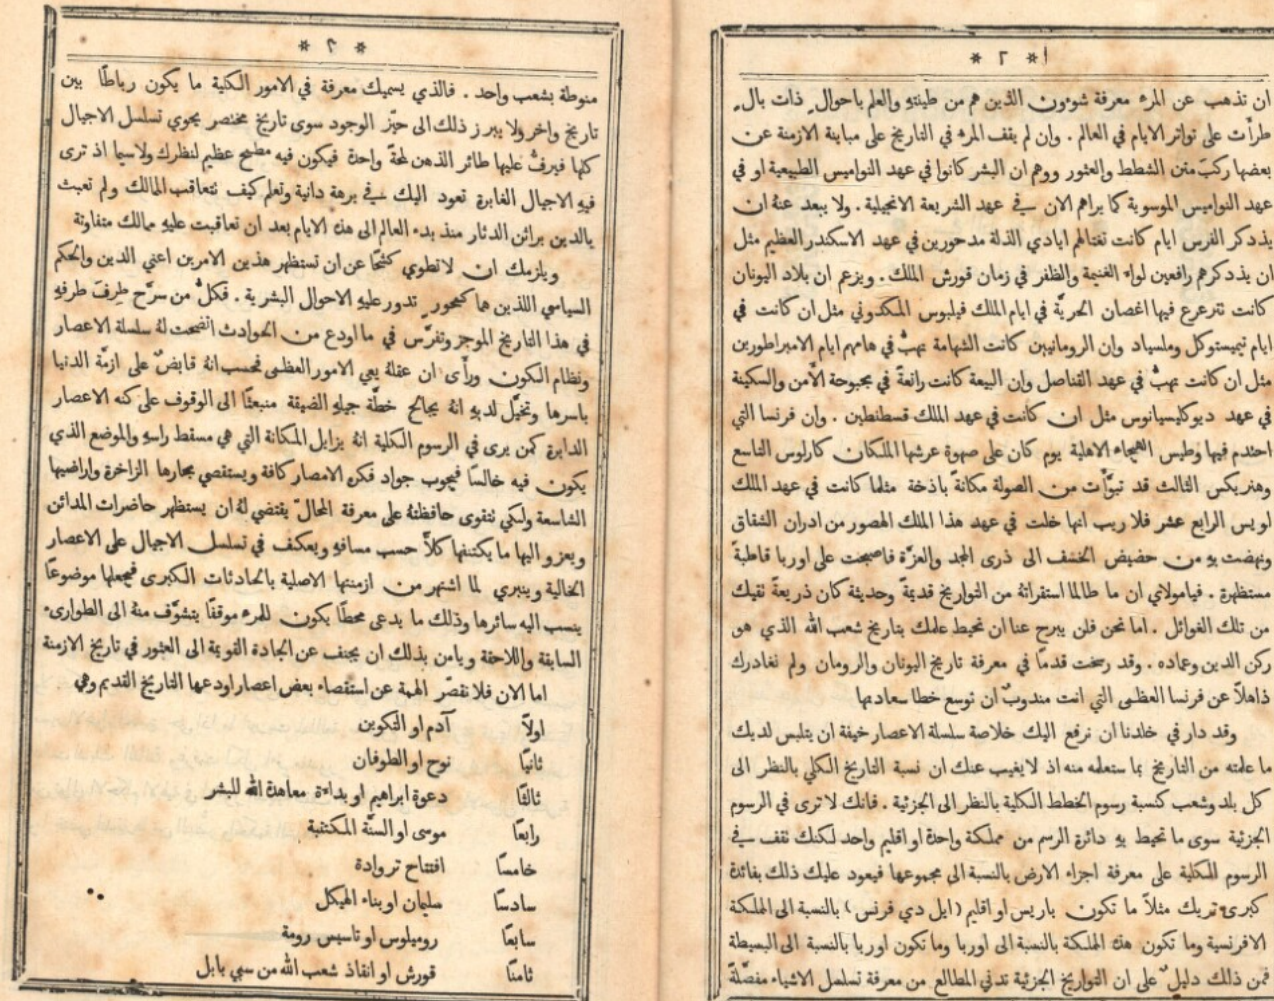 * ٢ *
ان تذهب عن المرء معرفة شوءون الذين هم من طينتهِ والعلم باحوالٍ ذات بالٍ
طرأت على تواتر الايام في العالم . وان لم يقف المرء في التاريخ على مباينة الازمنة عن
بعضها ركب متن الشطط والعثور ووهم ان البشر كانوا في عهد النواميس الطبيعية او في
عهد النواميس الموسوية كما يراهم الان في عهد الشريعة الانجيلية . ولا يبعد عنهُ ان
يذدكر الفرس ايام كانت تغتالهم ايادي الذلة مدحورين في عهد الاسكندر العظيم مثل
ان يذدكرهم رافعين لواء الغنيمة والظفر في زمان قورش الملك . ويزعم ان بلاد اليونان
كانت تترعرع فيها اغصان الحريَّة في ايام الملك فيلبوس المكدوني مثل ان كانت في
ايام تيميستوكل وملسياد وان الرومانيين كانت الشهامة تهبُّ في هامهم ايام الامبراطورين
مثل ان كانت تهبُّ في عهد القناصل وان البيعة كانت رانعةً في بحبوحة الأمن والسكينة
في عهد ديوكليسيانوس مثل ان كانت في عهد الملك قسطنطين . وان فرنسا التي
احتدم فيها وطيس الهيجاء الاهلية يوم كان على صهوة عرشها الملكان كارلوس التاسع
وهنريكس الثالث قد تبوَّأت من الصولة مكانةً باذخة مثلما كانت في عهد الملك
لويس الرابع عشر فلا ريب انها خلت في عهد هذا الملك الهصور من ادران الشقاق
ونهضت بهِ من حضيض الخسف الى ذرى المجد والعزَّة فاصبحت على اوربا قاطبةً
مستظهرة . فيامولاي ان ما طالما استقراتهُ من التواريخ قديمةً وحديثة كان ذريعةً تقيك
من تلك الغوائل . اما نحن فلن يبرح عنا ان تحيط علمك بتاريخ شعب الله الذي هو
ركن الدين وعماده . وقد رسخت قدمًا في معرفة تاريخ اليونان والرومان ولم نغادرك
ذاهلاً عن فرنسا العظمى التي انت مندوبٌ ان توسع خطا سعادتها
وقد دار في خلدنا ان نرفع اليك خلاصة سلسلة الاعصار خيفة ان يتلبس لديك
ما علمته من التاريخ بما ستعلمه منه اذ لا يغيب عنك ان نسبة التاريخ الكلي بالنظر الى
كل بلد وشعب كنسبة رسوم الخطط الكلية بالنظر الى الجزئية . فانك لا ترى في الرسوم
الجزئية سوى ما تحيط بهِ دائرة الرسم من مملكة واحدة او اقليم واحد لكنك تقف في
الرسوم الكلية على معرفة اجزاء الارض بالنسبة الى مجموعها فيعود عليك ذلك بفائدة
كبرى تريك مثلاً ما تكون باريس او اقليم (ايل دي فرنس) بالنسبة الى المملكة
الافرنسية وما تكون هذه المملكة بالنسبة الى اوربا وما تكون اوربا بالنسبة الى البسيطة
فمن ذلك دليلٌ على ان التواريخ الجزئية تدني المطالع من معرفة تسلسل الاشياء مفصَّلةً
* ٣ *
منوطة بشعب واحد . فالذي يسميك معرفة في الامور الكلية ما يكون رباطًا بين
تاريخ واخر ولا يبرز ذلك الى حيّز الوجود سوى تاريخ مختصر يحوي تسلسل الاجيال
كلها فيرفُّ عليها طائر الذهن لمحةً واحدة فيكون فيه مطمح عظيم لنظرك ولاسيما اذ ترى
فيهِ الاجيال الغابرة تعود اليك في برهة دانية وتعلم كيف تتعاقب الممالك ولم تعبث
بالدين براثن الدثار منذ بدء العالم الى هذه الايام بعد ان تعاقبت عليهِ ممالك متفاوتة
ويلزمك ان لا تطوي كشحًا عن ان تستظهر هذين الامرين اعني الدين والحكم
السياسي اللذين هما كمحورٍ تدور عليهِ الاحوال البشرية . فكلُّ من سرَّح طرفَ طرفهِ
في هذا التاريخ الموجز وتفرَّس في ما اودع من الحوادث اتضحت لهُ سلسلة الاعصار
ونظام الكون ورأى ان عقلهُ يعي الامور العظمى فحسب انهُ قابضٌ على ازمَّة الدنيا
باسرها وتخيَّل لديهِ انهُ يجانح خطَّة جيلهِ الضيقة منبعثًا الى الوقوف على كنه الاعصار
الدابرة كمن يرى في الرسوم الكلية انهُ يزايل المكانة التي هي مسقط راسهِ والموضع الذي
يكون فيه خالسًا فيجوب جواد فكره الامصار كافة ويستقصي بحارها الزاخرة واراضيها
الشاسعة ولكي تتقوى حافظتهُ على معرفة المحالّ يقتضي لهُ ان يستظهر حاضرات المدائن
ويعزو اليها ما يكتنفها كلاًّ حسب مسافهِ ويعكف في تسلسل الاجيال على الاعصار
الخالية وينبري لما اشتهر من ازمنتها الاصلية بالحادثات الكبرى فيجعلها موضوعًا
ينسب اليه سائرها وذلك ما يدعى محطًّا يكون للمرء موقفًا يتشوَّف منهُ الى الطوارىء
السابقة واللاحقة ويامن بذلك ان يجنف عن الجادة القويمة الى العثور في تاريخ الازمنة
اما الان فلا نقصّر الهمة عن استقصاء بعض اعصار اودعها التاريخ القديم وهي
اولاً آدم او التكوين
ثانيًا نوح او الطوفان
ثالثًا دعوة ابراهيم او بداءة معاهدة الله للبشر
رابعًا موسى او السنَّة المكتتبة
خامسًا افتتاح تروادة
سادسًا سليمان او بناء الهيكل
سابعًا روميلوس او تاسيس رومة
ثامنًا قورش او انقاذ شعب الله من سبي بابل